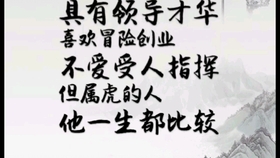 具有领导才华
喜欢冒险创业
不爱受人指挥
但属虎的人
他一生都比较